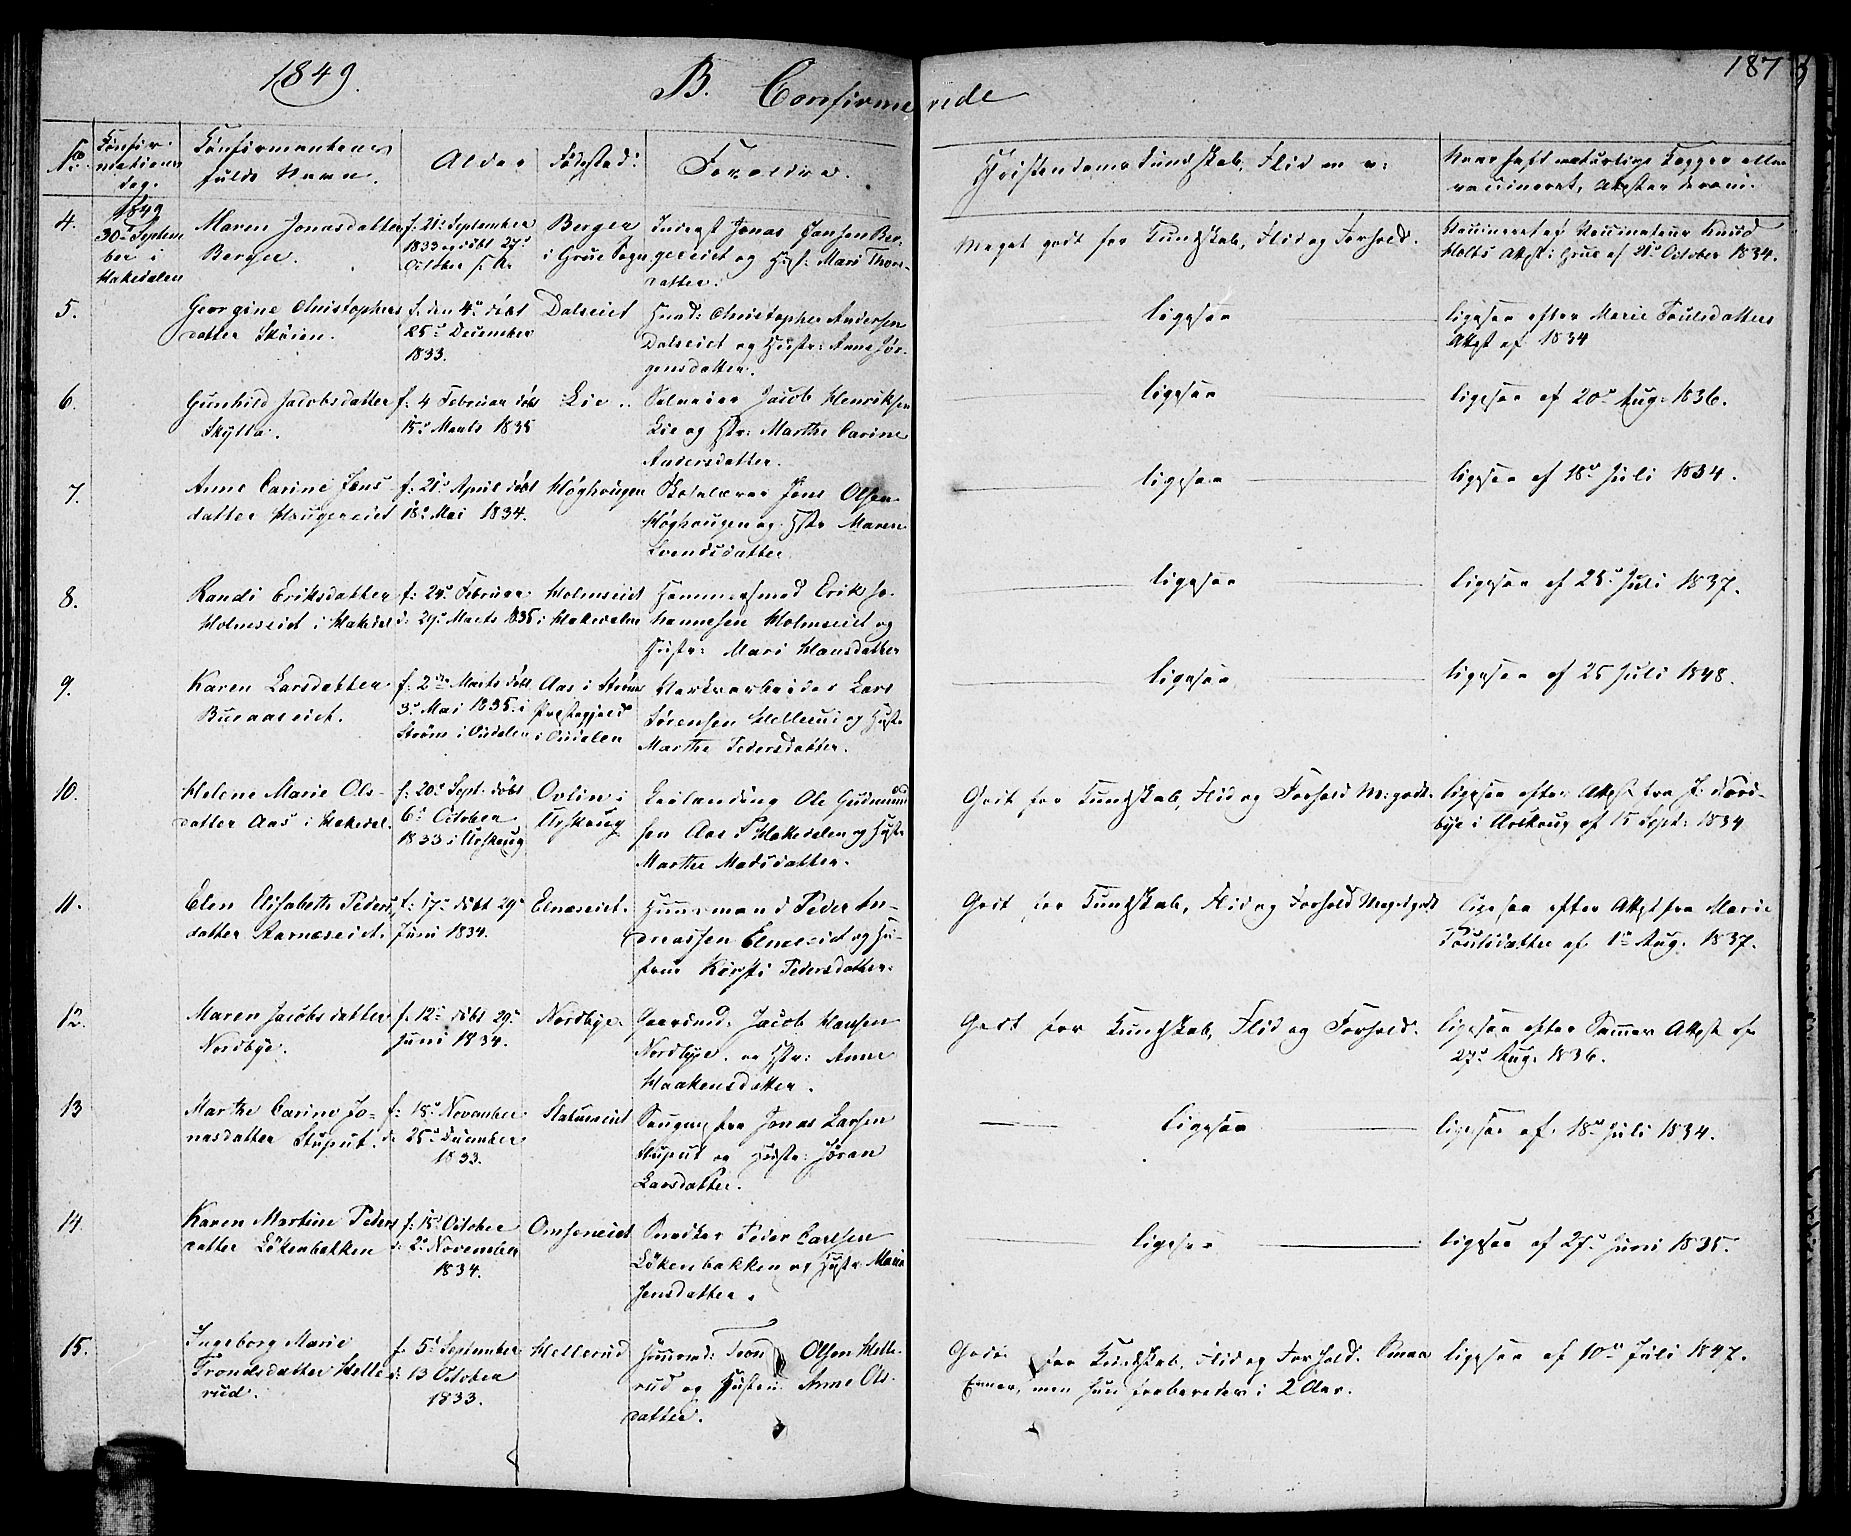 1849.
B. Confirmerede
187
No.
Confirmations dag.
Confirmantens fulde Navn.
Alder
Fødested:
Forældre.
Christendoms Kundskab, Flid m. v:
Naar havt naturlige Kopper eller vaccineret, Attester derom.
1849
4.
30te Septem
ber i
Hakedalen
Maren Jonasdatter
Berger.
f. 21de September
1833 døbt 27de
October s. A.
Berger
i Grue Sogn
Inderst Jonas Jansen Ber-
gereiet og Hust: Mari Thor-
datter.
Meget godt for Kundskab, Flid og Forhold.
Vaccineret af Vaccinateur Knud
Holts Attest: Grue af 21de October 1834.
5.
Georgine Christophers
datter Skøien.
f. den 4de døbt
25de December
1833.
Dalseiet
Husm: Christopher Andersen
Dalseiet og Hustr: Anne Jør-
gensdatter.
ligesaa
ligesaa efter Marie Poulsdatters
Attest af 1834
6.
Gunhild Jacobsdatter
Skytta.
f. 4 Februar døbt
15de Marts 1835
Lie.
Jacob Henriksen
Lie og Hstr: Marthe Carine
Andersdatter.
ligesaa
ligesaa af 20de Aug. 1836.
7.
Anne Carine Jens
datter Haugereiet
f: 21de April døbt
18de Mai 1834.
Høghaugen
Skolelærer Jens Olsen
Høghaugen og Hstr Maren
Svendsdatter.
ligesaa
ligesaa af 18de Juli 1834.
8.
Randi Eriksdatter
Holmseiet i Hakedal
f: 24de Februar
d: 29de Marts 1835
Holmseiet
i Hakedalen
Hammersmed Erik Jo-
hannesen Holmseiet og
Hustr: Mari Hansdatter
ligesaa
ligesaa af 25de Juli 1837.
9.
Karen Larsdatter
Buraaseiet.
f. 2den Marts døbt
3de Mai 1835. i
Strøm i Oudalen
Aas i Strøms
Prestegjeld
i Oudalen
Værksarbeider Lars
Sørensen Hellerud og Hustr
Marthe Pedersdatter.
ligesaa
ligesaa af 25 Juli 1848.
10.
Helene Marie Ols-
datter Aas i Hakedal.
f. 20de Sept. døbt
6te October
1833 i Urskoug
Ovlin i
Urskoug
Leilænding Ole Gudmund
sen Aas i Hakedalen og Hustr
Marthe Madsdatter.
Godt for Kundskab, Flid og Forhold M: godt.
ligesaa efter Attest fra J. Nord-
bye i Urskoug af 15 Sept: 1834
11.
Elen Elisabeth Peders
datter Aarnæseiet.
f: 17de døbt 29de
Juni 1834.
Elnæseiet.
Huusmand Peder An-
dreassen Elneseiet og Hu-
strue Kirsti Pedersdatter.
Godt for Kundskab, Flid og Forhold Megetgodt
ligesaa efter Attest fra Marie
Poulsdatter af 1te Aug. 1837.
12.
Maren Jacobsdatter
Nordbye.
f. 12te døbt 29de
Juni 1834.
Nordbye.
Gaardmd: Jacob Hansen
Nordbye. og Hstr: Anne
Haakensdatter.
Godt for Kundskab, Flid og Forhold.
ligesaa efter Samme Attest af
27de Aug. 1836.
13
Marthe Carine Jo-
nasdatter Stuput.
f: 18de November
d: 25de December
1833.
Jonas Larsen
Stuput og Hustr: Jøran
Larsdatter.
ligesaa
ligesaa af. 18de Juli 1834.
14.
Karen Martine Peders
datter Løkenbakken
f: 15de October
d: 2de November
1834.
Snedker Peder Carlsen
Løkenbakken og Hustr. Maria
Jensdatter.
ligesaa
ligesaa af 27de Juni 1835.
15.
Ingeborg Marie
Trondsdatter Helle
rud.
f. 5te September
d: 13 October
1833.
Hellerud
Huusmd: Tron Olsen Helle-
rud og Hustru Anne Ols-
datter.
Godt for Kundskab, Flid og Forhold. Smaa
Evner, men hun forberedet i 2 Aar.
ligesaa af 10de Juli 1847.